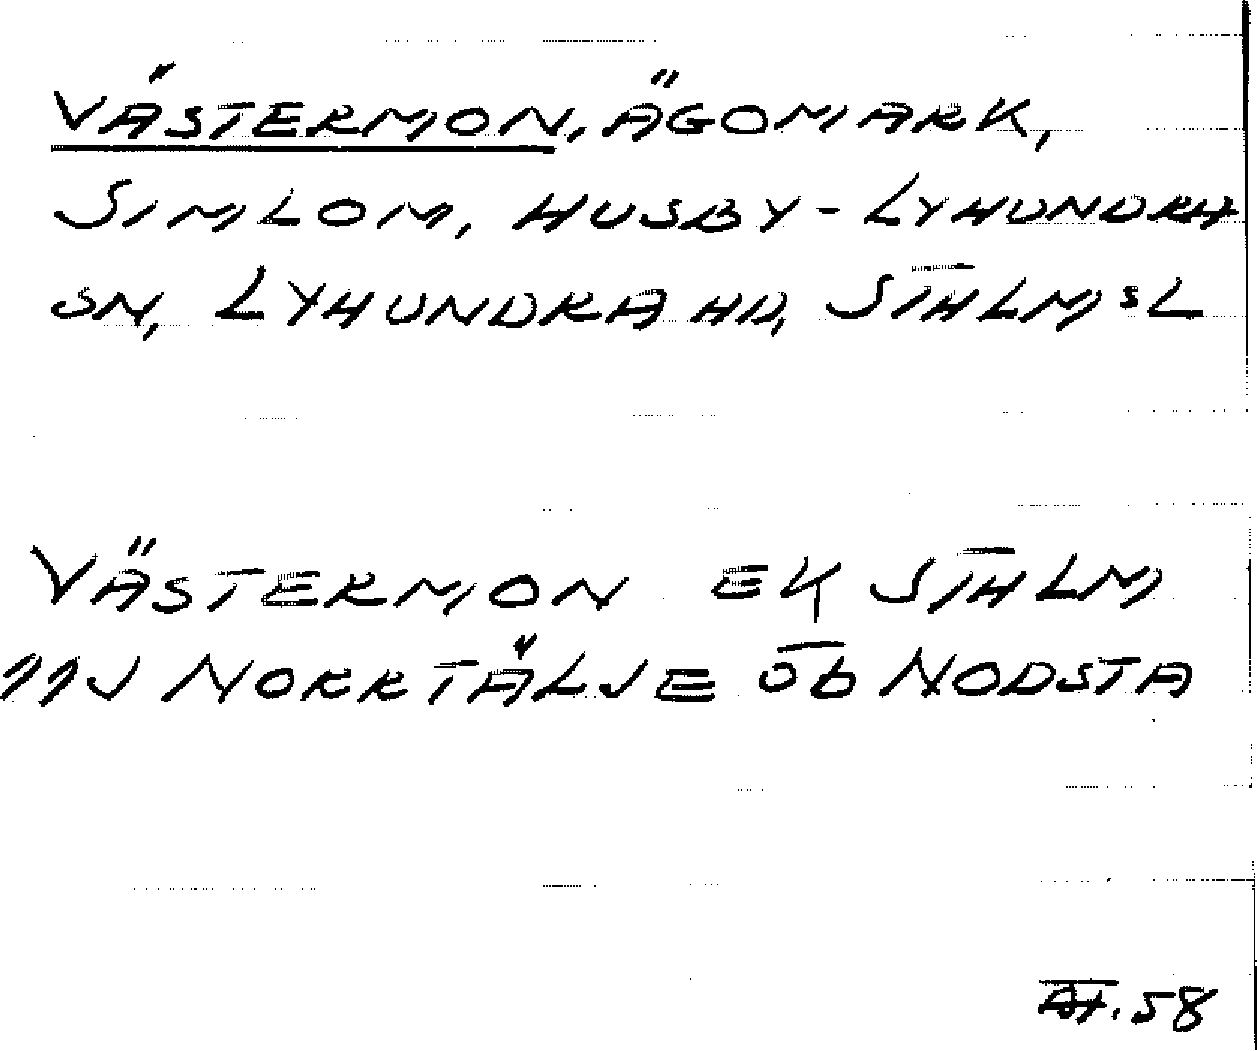 VÄSTERMON, ÄGOMARK,
SIMLOM, HUSBY-LYHUNDRA
SN, LYHUNDRA HD, STHLMSL
VÄSTERMON EK STHLM
11J NORRTÄLJE ÖB NODSTA
.58